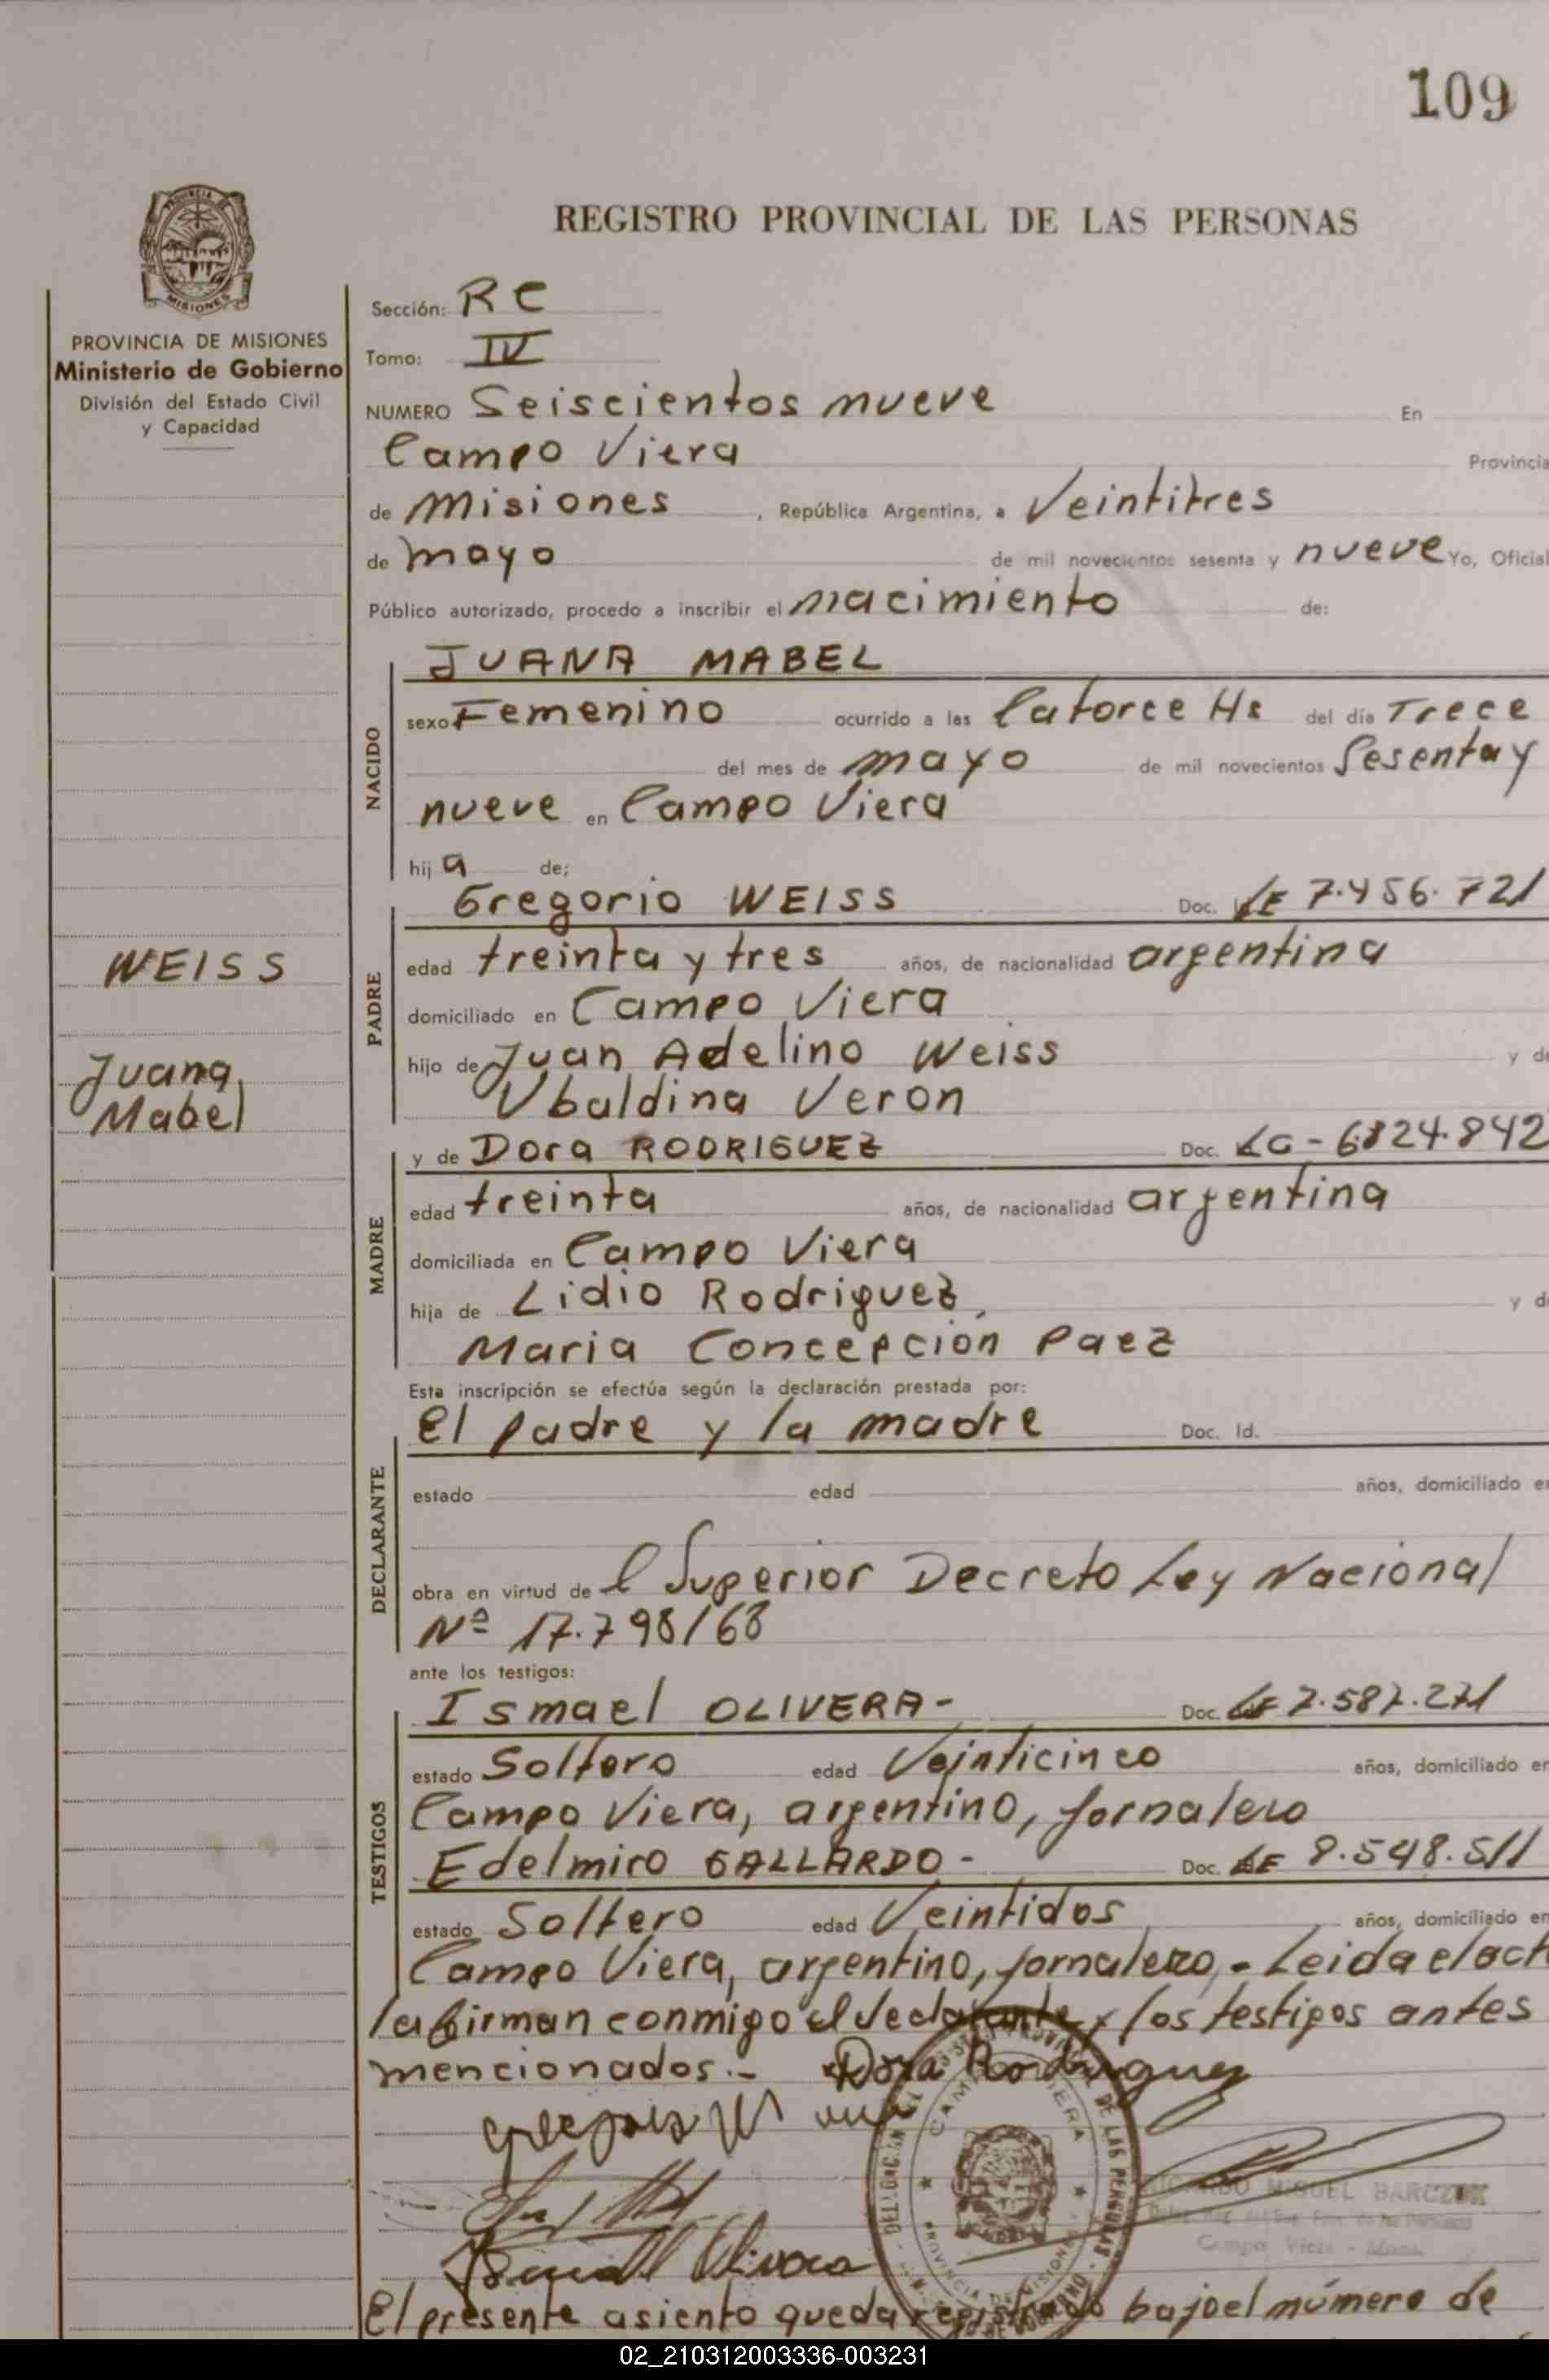 109
REGISTRO PROVINCIAL DE LAS PERSONAS
PROVINCIA DE MISIONES
Ministerio de Gobierno
División del Estado Civil
y Capacidad
Sección: RC
Tomo: IV
NUMERO Seiscientos nueve En
Campo Viera Provincia
de Misiones , República Argentina, a Veintitres
de mayo de mil novecientos sesenta y nueve Yo, Oficial
Público autorizado, procedo a inscribir el nacimiento de:
NACIDO
JUANA MABEL
sexo Femenino ocurrido a las Catorce Hs del día Trece
del mes de mayo de mil novecientos Sesenta y
nueve en Campo Viera
hij a de;
WEISS
Juana
Mabel
PADRE
Gregorio WEISS Doc. LE 7.456.721
edad treinta y tres años, de nacionalidad argentina
domiciliado en Campo Viera
hijo de Juan Adelino Weiss y de
Ubaldina Veron
MADRE
y de Dora RODRIGUEZ Doc. LC - 6.824.842
edad treinta años, de nacionalidad argentina
domiciliada en Campo Viera
hija de Lidio Rodriguez, y de
Maria Concepción Paez
DECLARANTE
Esta inscripción se efectúa según la declaración prestada por:
El padre y la madre Doc. Id.
estado edad años, domiciliado en
obra en virtud de l Superior Decreto Ley Nacional
Nº 17.798/68
TESTIGOS
ante los testigos:
Ismael OLIVERA - Doc. LE
estado Soltero edad Veinticinco años, domiciliado en
Campo Viera, argentino, jornalero
Edelmiro GALLARDO - Doc. LE 8.548.511
estado Soltero edad Veintidos años, domiciliado en
Campo Viera, argentino, jornalero.- Leida el act
la firman conmigo el declarante y los testigos antes
mencionados.- Dora Rodriguez
CAMPO VIERA
PROVINCIA DE MISIONES
MIGUEL BARCZUK
Campo Viera - Mnes.
Olivera
El presente asiento queda registrado bajo el número de
02_210312003336-003231